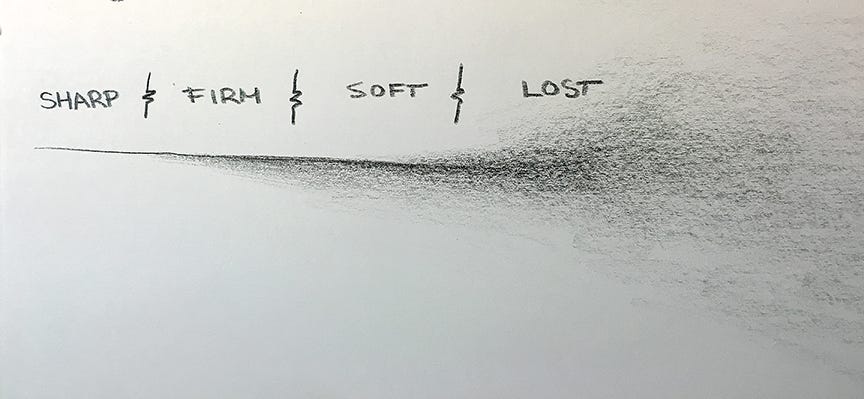 SHARP FIRM SOFT LOST